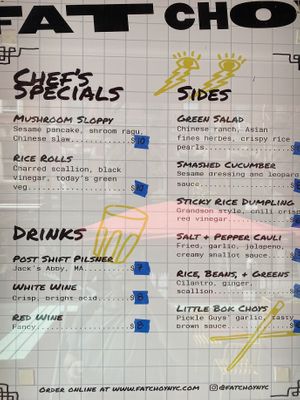 FAT CHOY
CHEF'S
SPECIALS
MUSHROOM SLOPPY
Sesame pancake, shroom ragu,
Chinese slaw...............$10
RICE ROLLS
Charred scallion, black
vinegar, today's green
veg........................$10
DRINKS
POST SHIFT PILSNER
Jack's Abby, MA............$7
WHITE WINE
Crisp, bright acid.........$8
RED WINE
Fancy......................$8
SIDES
GREEN SALAD
Chinese ranch, Asian
fines herbes, crispy rice
pearls.....................$
SMASHED CUCUMBER
Sesame dressing and leopard
sauce......................$
STICKY RICE DUMPLING
Grandson style, chili crisp
red vinegar................$
SALT & PEPPER CAULI
Fried, garlic, jalapeno,
creamy shallot sauce.......$
RICE, BEANS, & GREENS
Cilantro, ginger,
scallion...................$
LITTLE BOK CHOYS
Pickle Guys' garlic, tasty
brown sauce................$
ORDER ONLINE AT WWW.FATCHOYNYC.COM @FATCHOYNYC